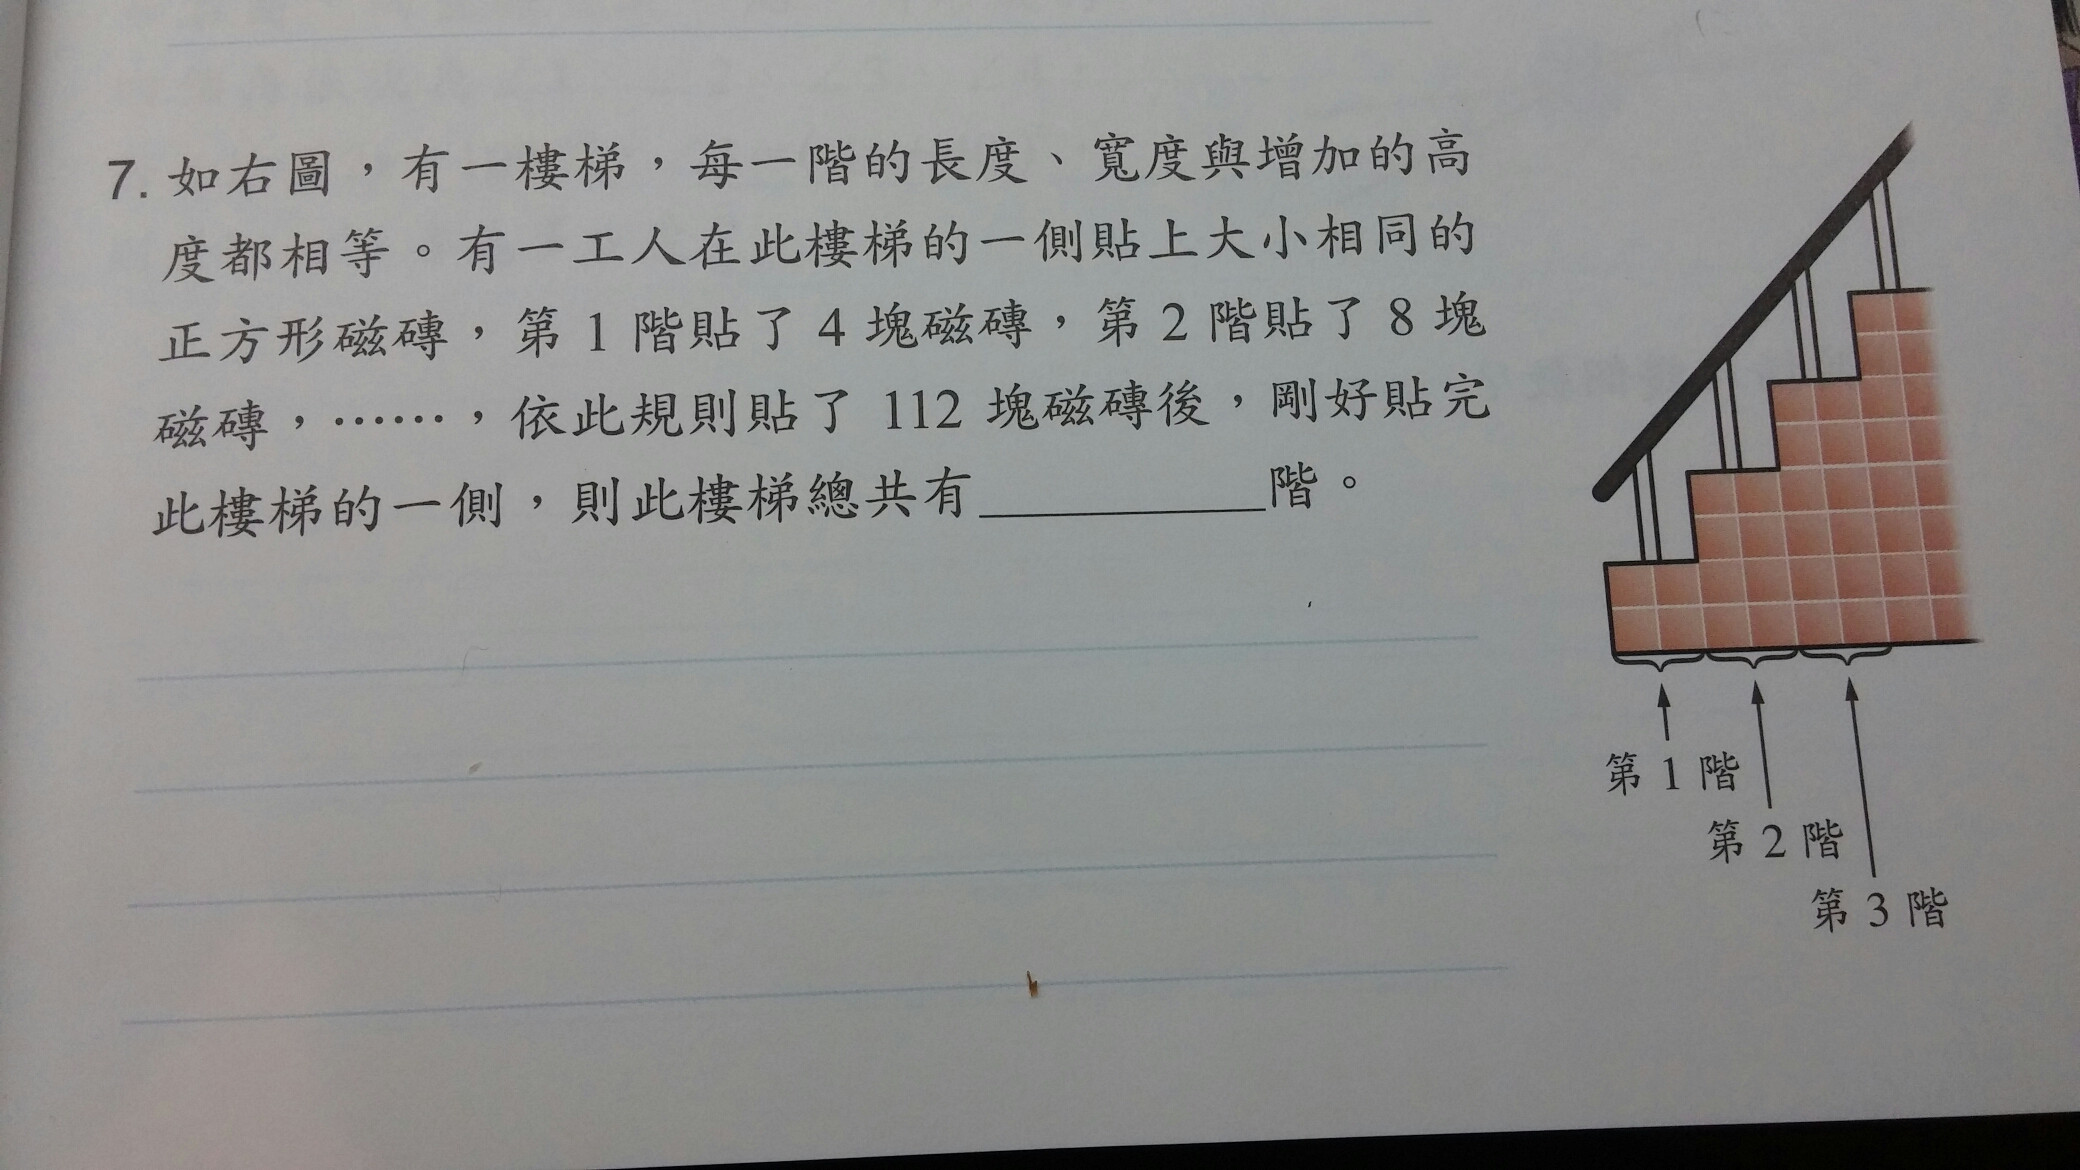 7. 如右圖，有一樓梯，每一階的長度、寬度與增加的高
度都相等。有一工人在此樓梯的一側貼上大小相同的
正方形磁磚，第 1 階貼了 4 塊磁磚，第 2 階貼了 8 塊
磁磚，……，依此規則貼了 112 塊磁磚後，剛好貼完
此樓梯的一側，則此樓梯總共有__________階。
第 1 階
第 2 階
第 3 階